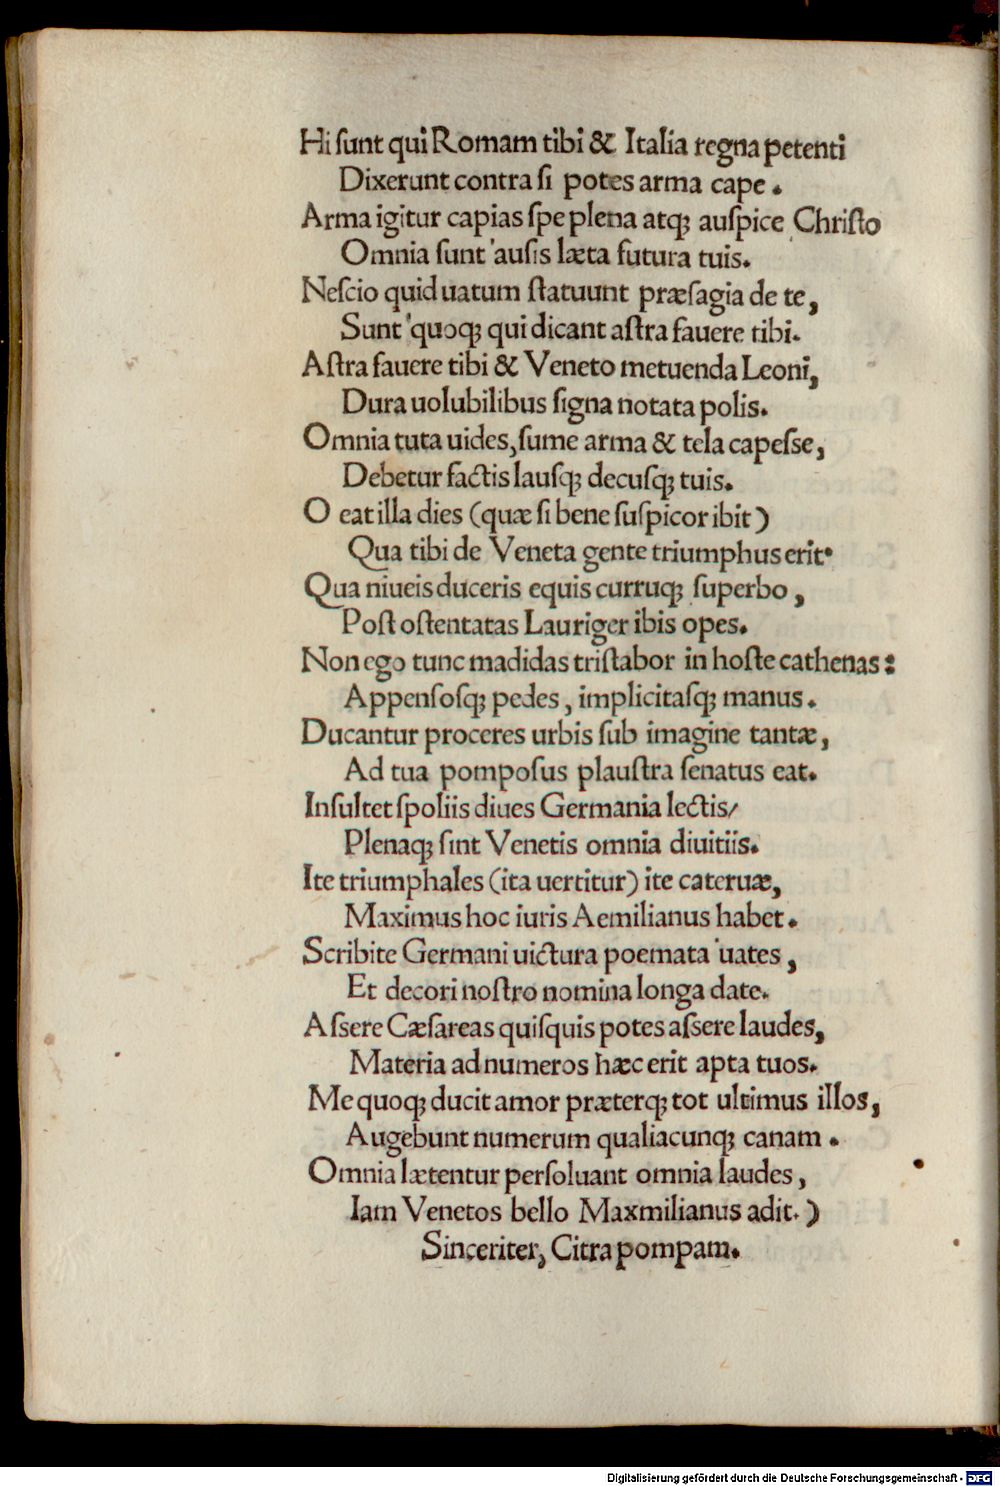 Hi ſunt qui Romam tibi & Italia regna petenti
Dixerunt contra ſi potes arma cape .
Arma igitur capias ſpe plena atqꝫ auſpice Chriſto
Omnia ſunt auſis læta futura tuis.
Neſcio quid uatum ſtatuunt præſagia de te,
Sunt quoqꝫ qui dicant aſtra fauere tibi.
Aſtra fauere tibi & Veneto metuenda Leoni,
Dura uolubilibus ſigna notata polis.
Omnia tuta uides, ſume arma & tela capeſſe,
Debetur factis lauſqꝫ decuſqꝫ tuis.
O eat illa dies (quæ ſi bene ſuſpicor ibit)
Qua tibi de Veneta gente triumphus erit.
Qua niueis duceris equis curruqꝫ ſuperbo ,
Poſt oſtentatas Lauriger ibis opes.
Non ego tunc madidas triſtabor in hoſte cathenas:
Appenſoſqꝫ pedes , implicitaſqꝫ manus .
Ducantur proceres urbis ſub imagine tantæ ,
Ad tua pompoſus plauſtra ſenatus eat.
Inſultet ſpoliis diues Germania lectis/
Plenaqꝫ ſint Venetis omnia diuitiis.
Ite triumphales (ita uertitur) ite cateruæ,
Maximus hoc iuris Aemilianus habet .
Scribite Germani uictura poemata uates ,
Et decori noſtro nomina longa date.
Aſſere Cæſareas quiſquis potes aſſere laudes,
Materia ad numeros hæc erit apta tuos.
Me quoqꝫ ducit amor præterqꝫ tot ultimus illos,
Augebunt numerum qualiacunqꝫ canam .
Omnia lætentur perſoluant omnia laudes ,
Iam Venetos bello Maxmilianus adit. )
Sinceriter, Citra pompam.
Digitalisierung gefördert durch die Deutsche Forschungsgemeinschaft - DFG